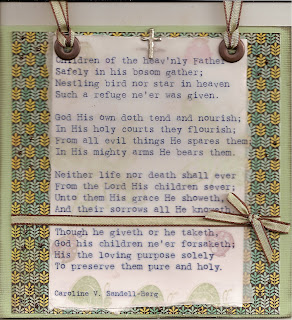 Children of the heav'nly Father
Safely in his bosom gather;
Nestling bird nor star in heaven
Such a refuge ne'er was given.
God His own doth tend and nourish;
In His holy courts they flourish;
From all evil things He spares them;
In His mighty arms He bears them.
Neither life nor death shall ever
From the Lord His children sever;
Unto them His grace He showeth,
And their sorrows all He knoweth.
Though he giveth or he taketh,
God his children ne'er forsaketh;
His the loving purpose solely
To preserve them pure and holy.
Caroline V. Sandell-Berg